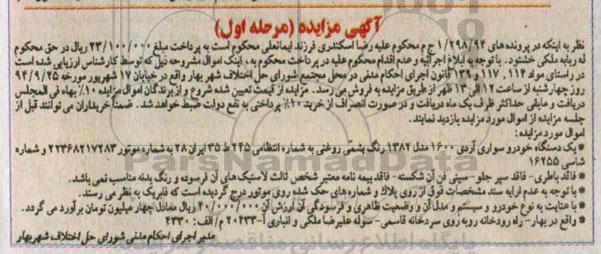 آگهی مزایده (مرحله اول)
نظر به اینکه در پرونده های ۱/۲۹۸/۹۴ ج م محکوم علیه رضا اسکندری فرزند ایمانعلی محکوم است به پرداخت مبلغ ۲۳/۱۰۰/۰۰۰ ریال در حق محکوم
له ربابه ملکی خشنود. با توجه به ابلاغ اجرائیه و عدم اقدام محکوم علیه در پرداخت محکوم به، اینک اموال مشروحه ذیل که توسط کارشناس ارزیابی شده است
در راستای مواد ۱۱۴، ۱۱۷ و ۱۳۹ قانون اجرای احکام مدنی در محل مجتمع شورای حل اختلاف شهر بهار واقع در خیابان ۱۷ شهریور مورخه ۹۴/۹/۲۵
روز چهارشنبه از ساعت ۱۲ الی ۱۳ ظهر از طریق مزایده به فروش می رسد. مزایده از قیمت تعیین شده شروع و از برندگان اموال مزایده ۱۰٪ بهاء فی المجلس
دریافت و مابقی حداکثر ظرف یک ماه دریافت و در صورت انصراف از خرید ۱۰٪ پرداختی به نفع دولت ضبط خواهد شد. ضمناً خریداران می توانند قبل از
جلسه مزایده از اموال مورد مزایده بازدید نمایند.
اموال مورد مزایده:
* یک دستگاه خودرو سواری آردی ۱۶۰۰ مدل ۱۳۸۲ رنگ یشمی روغنی به شماره انتظامی ۲۴۵ ط ۳۵ ایران ۲۸ به شماره موتور ۲۲۳۶۸۲۱۷۲۸۳ و شماره
شاسی ۱۶۲۵۵
* فاقد باطری- فاقد سپر جلو- سینی فن آن شکسته- فاقد بیمه نامه معتبر شخص ثالث لاستیک های آن فرسوده و رنگ بدنه مناسب نمی باشد.
* با توجه به عدم ارایه سند مشخصات فوق از روی پلاک و شماره های حک شده روی موتور درج گردیده است که فابریک به نظر می رسند.
* با عنایت به نوع خودرو و سیستم و مدل آن و وضعیت ظاهری و فرسودگی آن ارزش آن ۴۰/۰۰۰/۰۰۰ ریال معادل چهار میلیون تومان برآورد می گردد.
* واقع در بهار- راه رودخانه روبه روی سردخانه قاسمی- سوله علیرضا ملکی و انباری آ-۲۰۴۳۳ م/الف: ۴۳۳۰
مدیر اجرای احکام مدنی شورای حل اختلاف شهر بهار
ParsNamadData
پایگاه اطلاع رسانی مناقصه و مزایده